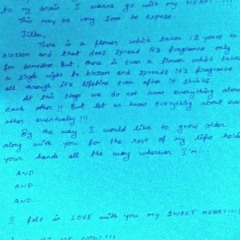 to my brain. I wanna go with my HEART!!!!
This may be very soon to expose.
There is a flower which takes 12 years to
blossom and that does spread its fragrance only
for sometime. But, there is even a flower which takes
a single night to blossom and spreads its fragrance
all through its lifetime even after it
At this stage we do not know everything about
each other!! But let us know everything about each
other eventually!!!
By the way, I would like to good older
along with you for the rest of my life holding
your hands all the way wherever I'm...
AND
AND
AND.
I fell in LOVE with you my SWEET HEART!!!!
ME NOW!!!!